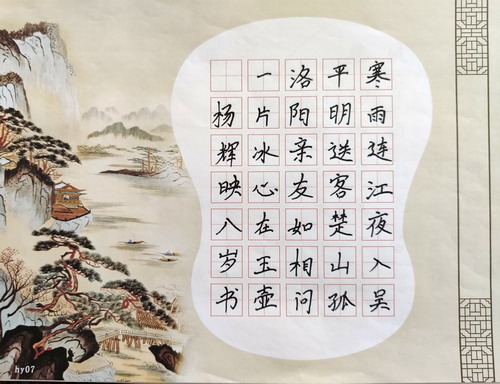 寒雨连江夜入吴
平明送客楚山孤
洛阳亲友如相问
一片冰心在玉壶
杨辉映八岁书
hy07